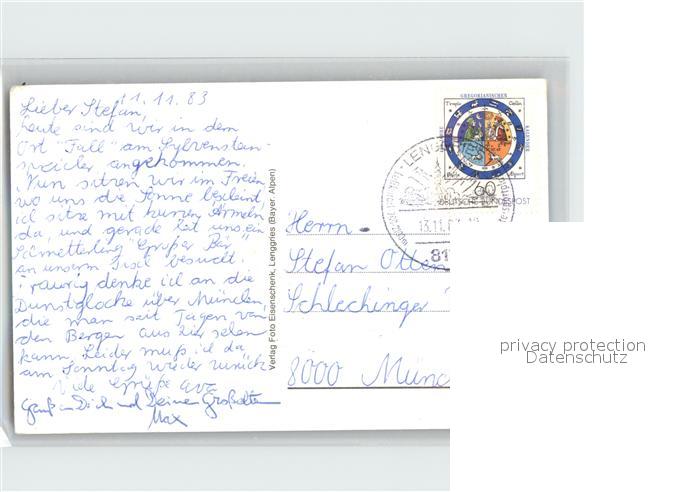 11.11.83
Lieber Stefan,
heute sind wir in dem
Ort "Fall" am Sylvenstein-
speicher angekommen.
Nun sitzen wir im Freien,
wo uns die Sonne bescheint,
ich sitze mit kurzen Ärmeln
da, und gerade hat uns ein
Schmetterling "Großer Bär"
an unserm Tisch besucht.
Traurig denke ich an die
Dunstglocke über München,
die man seit Tagen von
den Bergen aus hier sehen
kann. Leider muß ich da
am Sonntag wieder zurück.
Viele Grüße
Gruß an Dich und Deine Großeltern
Max
Verlag Foto Eisenschenk, Lenggries (Bayer. Alpen)
GREGORIANISCHER
60
DEUTSCHE BUNDESPOST
LENGGRIES
13.11.
81
Herrn
Stefan Otten
Schlechinger
8000 Münc
privacy protection
Datenschutz